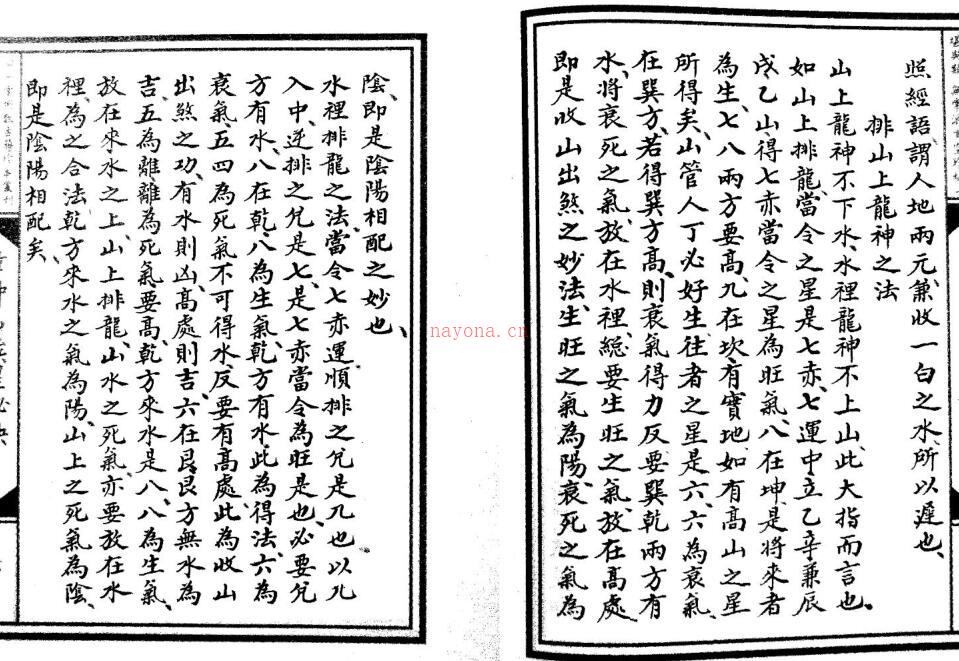 照經語謂人地兩元兼收一白之水、所以遲也、
排山上龍神之法
山上龍神不下水、水裡龍神不上山、此大指而言也。
如山上排龍當令之星是七赤、七運中立乙辛兼辰
戌乙山、得七赤當令之星為旺氣、八在坤、是將來者
為生、七八兩方要高、九在坎、有寶地、如有高山之星
所得矣、山管人丁必好生往者之星是六、六為衰氣、
在巽方、若得巽方高、則衰氣得力反要巽乾兩方有
水、將衰死之氣放在水裡、總要生旺之氣、放在高處、
即是收山出煞之妙法、生旺之氣為陽、衰死之氣為
陰、即是陰陽相配之妙也、
水裡排龍之法、當令七赤運、順排之兌是九也、以九
入中、逆排之兌是七、是七赤當令為旺是也、必要兌
方有水、八在乾、八為生氣、乾方有水、此為得法、六為
衰氣、五四為死氣不可得水、反要有高處、此為收山
出煞之功、有水則凶、高處則吉、六在艮、艮方無水為
吉、五為離離為死氣要高、乾方來水是八、八為生氣、
放在來水之上、山上排龍、山水之死氣、亦要放在水
裡、為之合法乾方來水之氣為陽、山上之死氣為陰、
即是陰陽相配矣、
nayona.cn